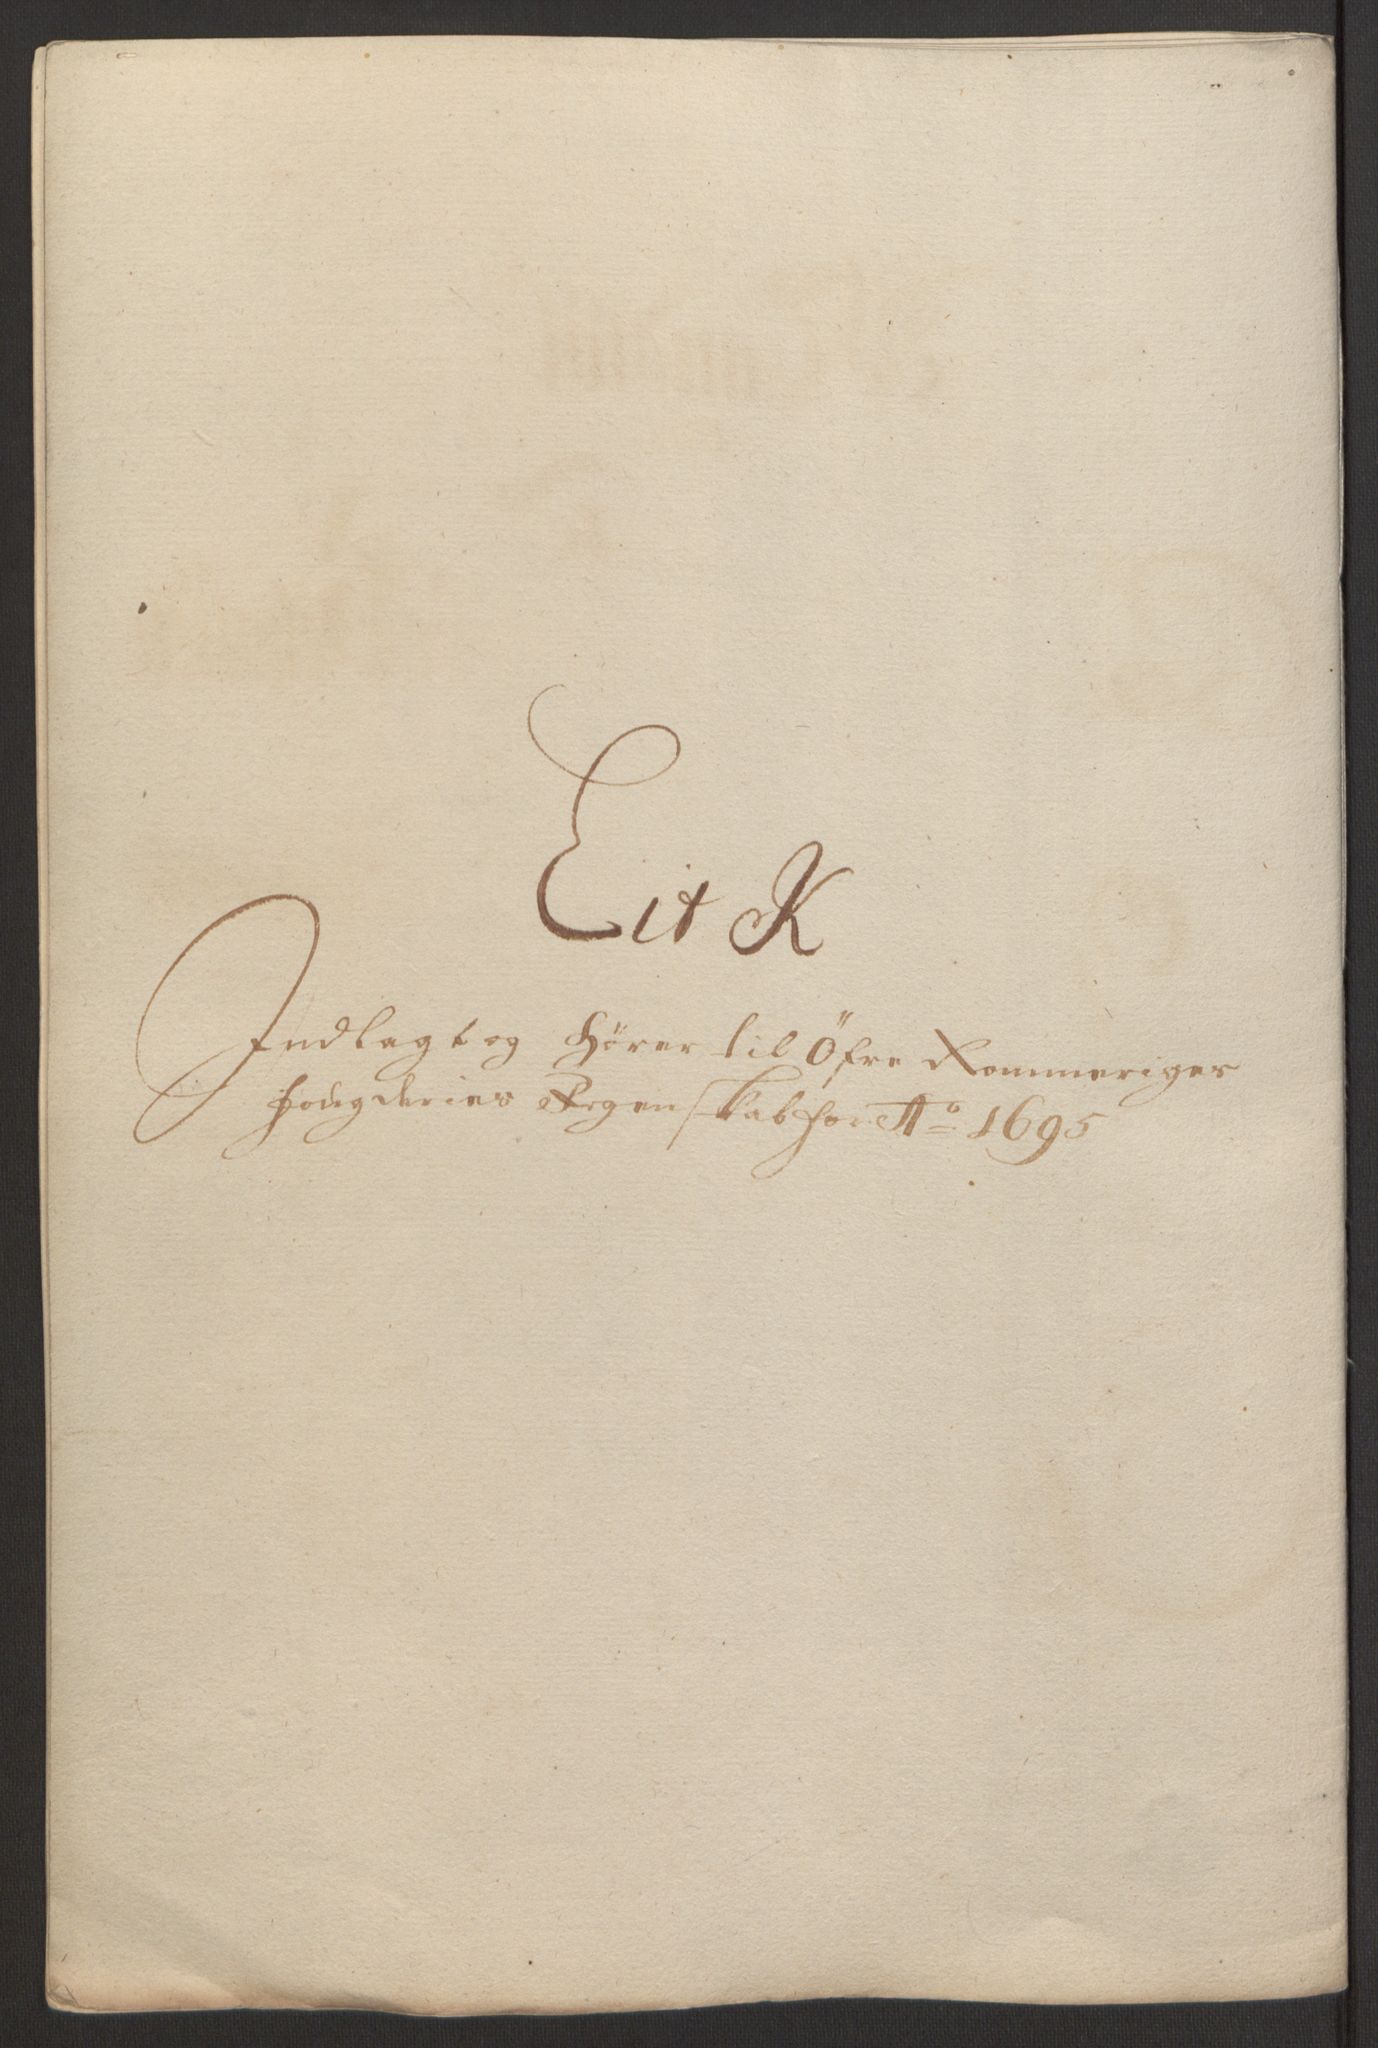 Lit K
Indlagt og hörer til Öfre Rommeriges
fougderies Regenskab for Ao 1695